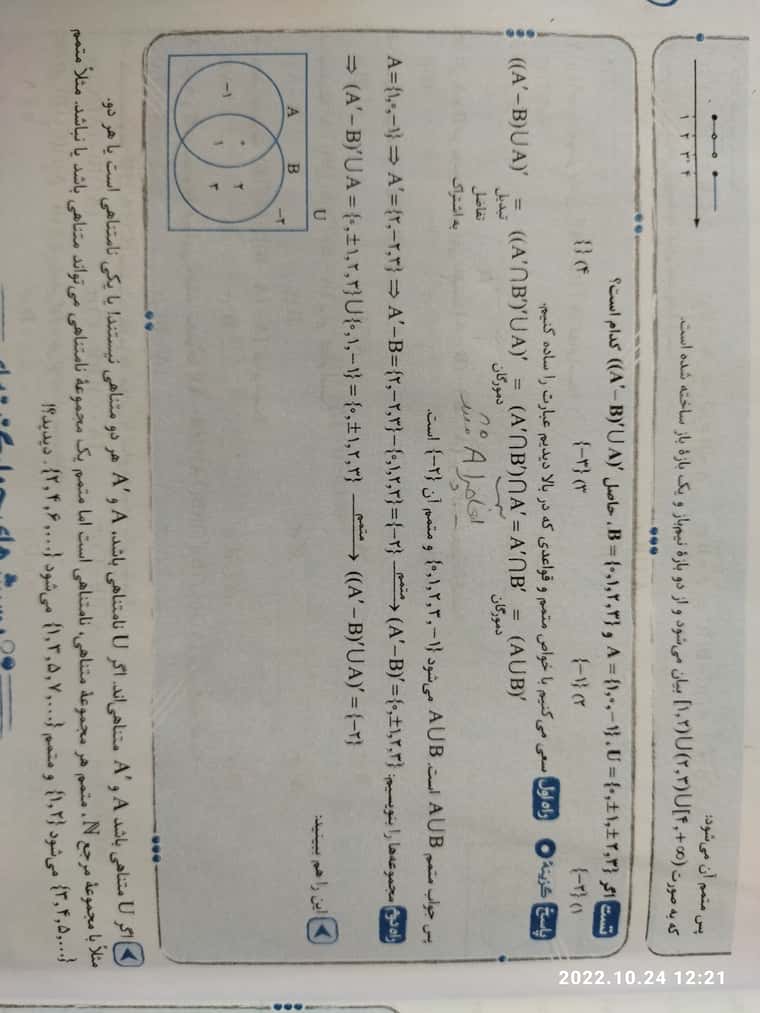 پس متمم آن می‌شود:
۱ ۲ ۳ ۴
که به صورت [۱,۲)∪(۲,۳)∪[۴,+∞) بیان می‌شود و از دو بازهٔ نیم‌باز و یک بازهٔ باز ساخته شده است.
تست اگر U={۰,±۱,±۲,۳}، A={۱,۰,−۱} و B={۰,۱,۲,۳}، حاصل ((A′−B)′∪A)′ کدام است؟
۱) {−۲} ۲) {−۱} ۳) {−۳} ۴) {}
پاسخ گزینهٔ ۱ راه اول سعی می‌کنیم با خواص متمم و قواعدی که در بالا دیدیم عبارت را ساده کنیم.
((A′−B)′∪A)′ = ((A′∩B′)′∪A)′ = (A′∩B′)∩A′ = A′∩B′ = (A∪B)′
تبدیل تفاضل به اشتراک دمورگان دمورگان
پس جواب متمم A∪B است. A∪B می‌شود {۰,۱,۲,۳,−۱} و متمم آن {−۲} است.
راه دوم مجموعه‌ها را بنویسیم:
A={۱,۰,−۱} ⇒ A′={۲,−۲,۳} ⇒ A′−B={۲,−۲,۳}−{۰,۱,۲,۳}={−۲} متمم→ (A′−B)′={۰,±۱,۲,۳}
⇒ (A′−B)′∪A={۰,±۱,۲,۳}∪{۰,۱,−۱}={۰,±۱,۲,۳} متمم→ ((A′−B)′∪A)′={−۲}
این را هم ببینید:
U
A B
−۱ ۰ ۱ ۲ ۳ −۲
اگر U متناهی باشد A و A′ متناهی‌اند. اگر U نامتناهی باشد، A و A′ هر دو متناهی نیستند! یا یکی نامتناهی است یا هر دو.
مثلاً با مجموعهٔ مرجع ℕ، متمم هر مجموعهٔ متناهی، نامتناهی است اما متمم یک مجموعهٔ نامتناهی می‌تواند متناهی باشد یا نباشد. مثلاً متمم
{۳,۴,۵,...} می‌شود {۱,۲} و متمم {۱,۳,۵,۷,...} می‌شود {۲,۴,۶,...}. دیدید؟!
2022.10.24 12:21